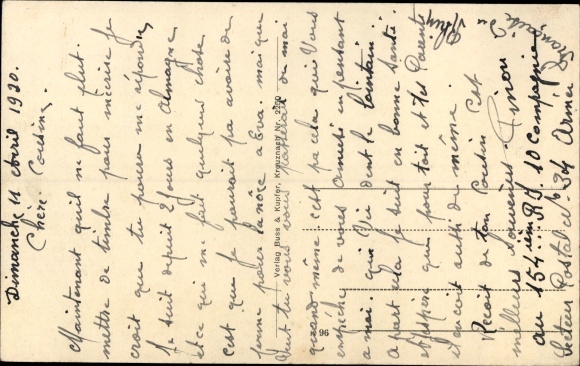 Dimanche 11 avril 1920.
Chère Cousine.
Maintenant quil ne faut plut.
mettre de timbre pour m'écrire je
croit que tu pouras me répondre,
Je suit depuit 2 jours en Almagne
et ce qui me fait quelques chose
c'est que je pourait pa avoire de
perme pour la nôce a Eva. mai que
veut tu vous vous passerait de mai
quand même c'est pa cela qui Vous
empêche de vous amusé en pensant
a mai. qui Vie dent le lointain
a part cela je suit en bonne santé.
et j'espère que pour toit et tes Parents
il en soit aussi de même.
Recoit de ton Cousin c'est
meilleurs souvenirs. Simon
au 154 iem R.I. 10 Compagnie
Secteur Postal 34 Armée Française du
Rhin
Verlag Buss & Kupfer, Kreuznach Nr. 2250
96